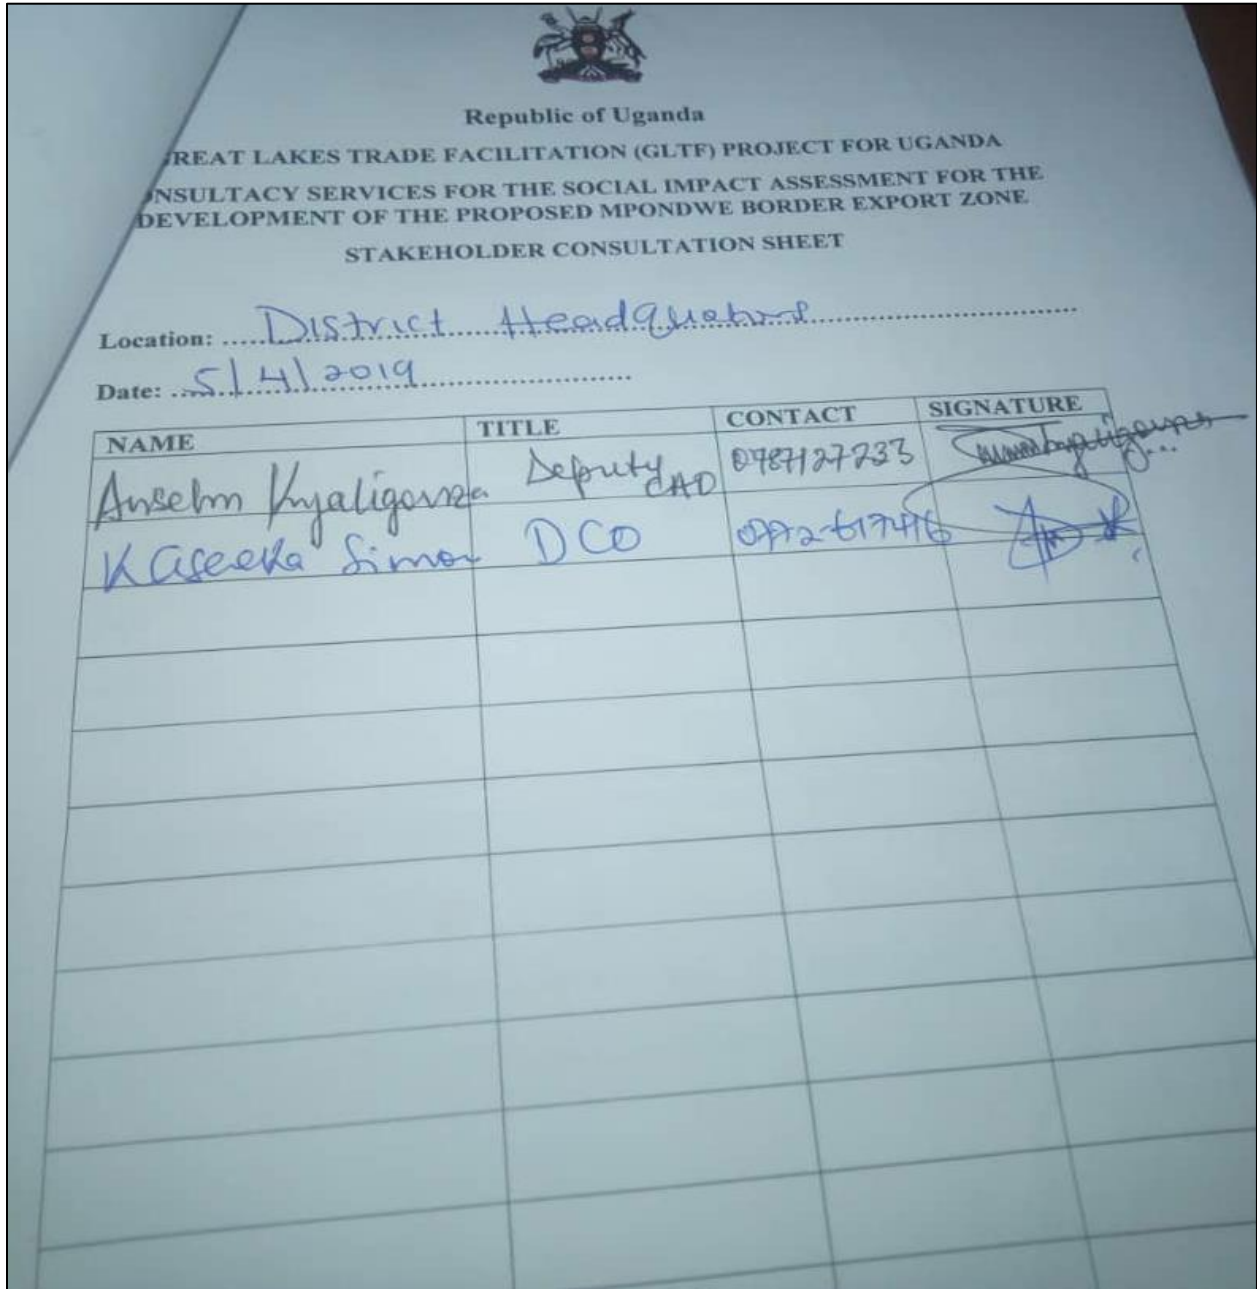 Republic of Uganda
REAT LAKES TRADE FACILITATION (GLTF) PROJECT FOR UGANDA
NSULTACY SERVICES FOR THE SOCIAL IMPACT ASSESSMENT FOR THE
DEVELOPMENT OF THE PROPOSED MPONDWE BORDER EXPORT ZONE
STAKEHOLDER CONSULTATION SHEET
Location: District Headquaters
Date: 5/4/2019
NAME TITLE CONTACT SIGNATURE
Anselm Kyaligonza Deputy CAO 0787127233
Kaseeka Simon DCO 0772-617476